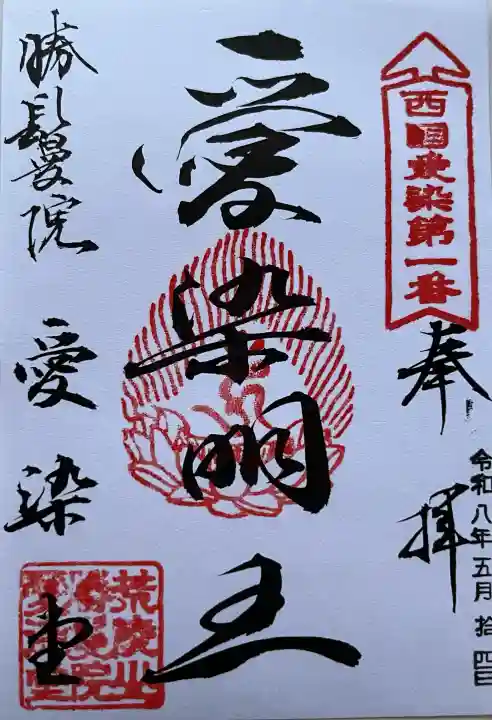 西国愛染第一番
奉拝
令和八年五月拾四日
愛染明王
勝鬘院
愛染堂
荒陵山
勝鬘院
愛染堂